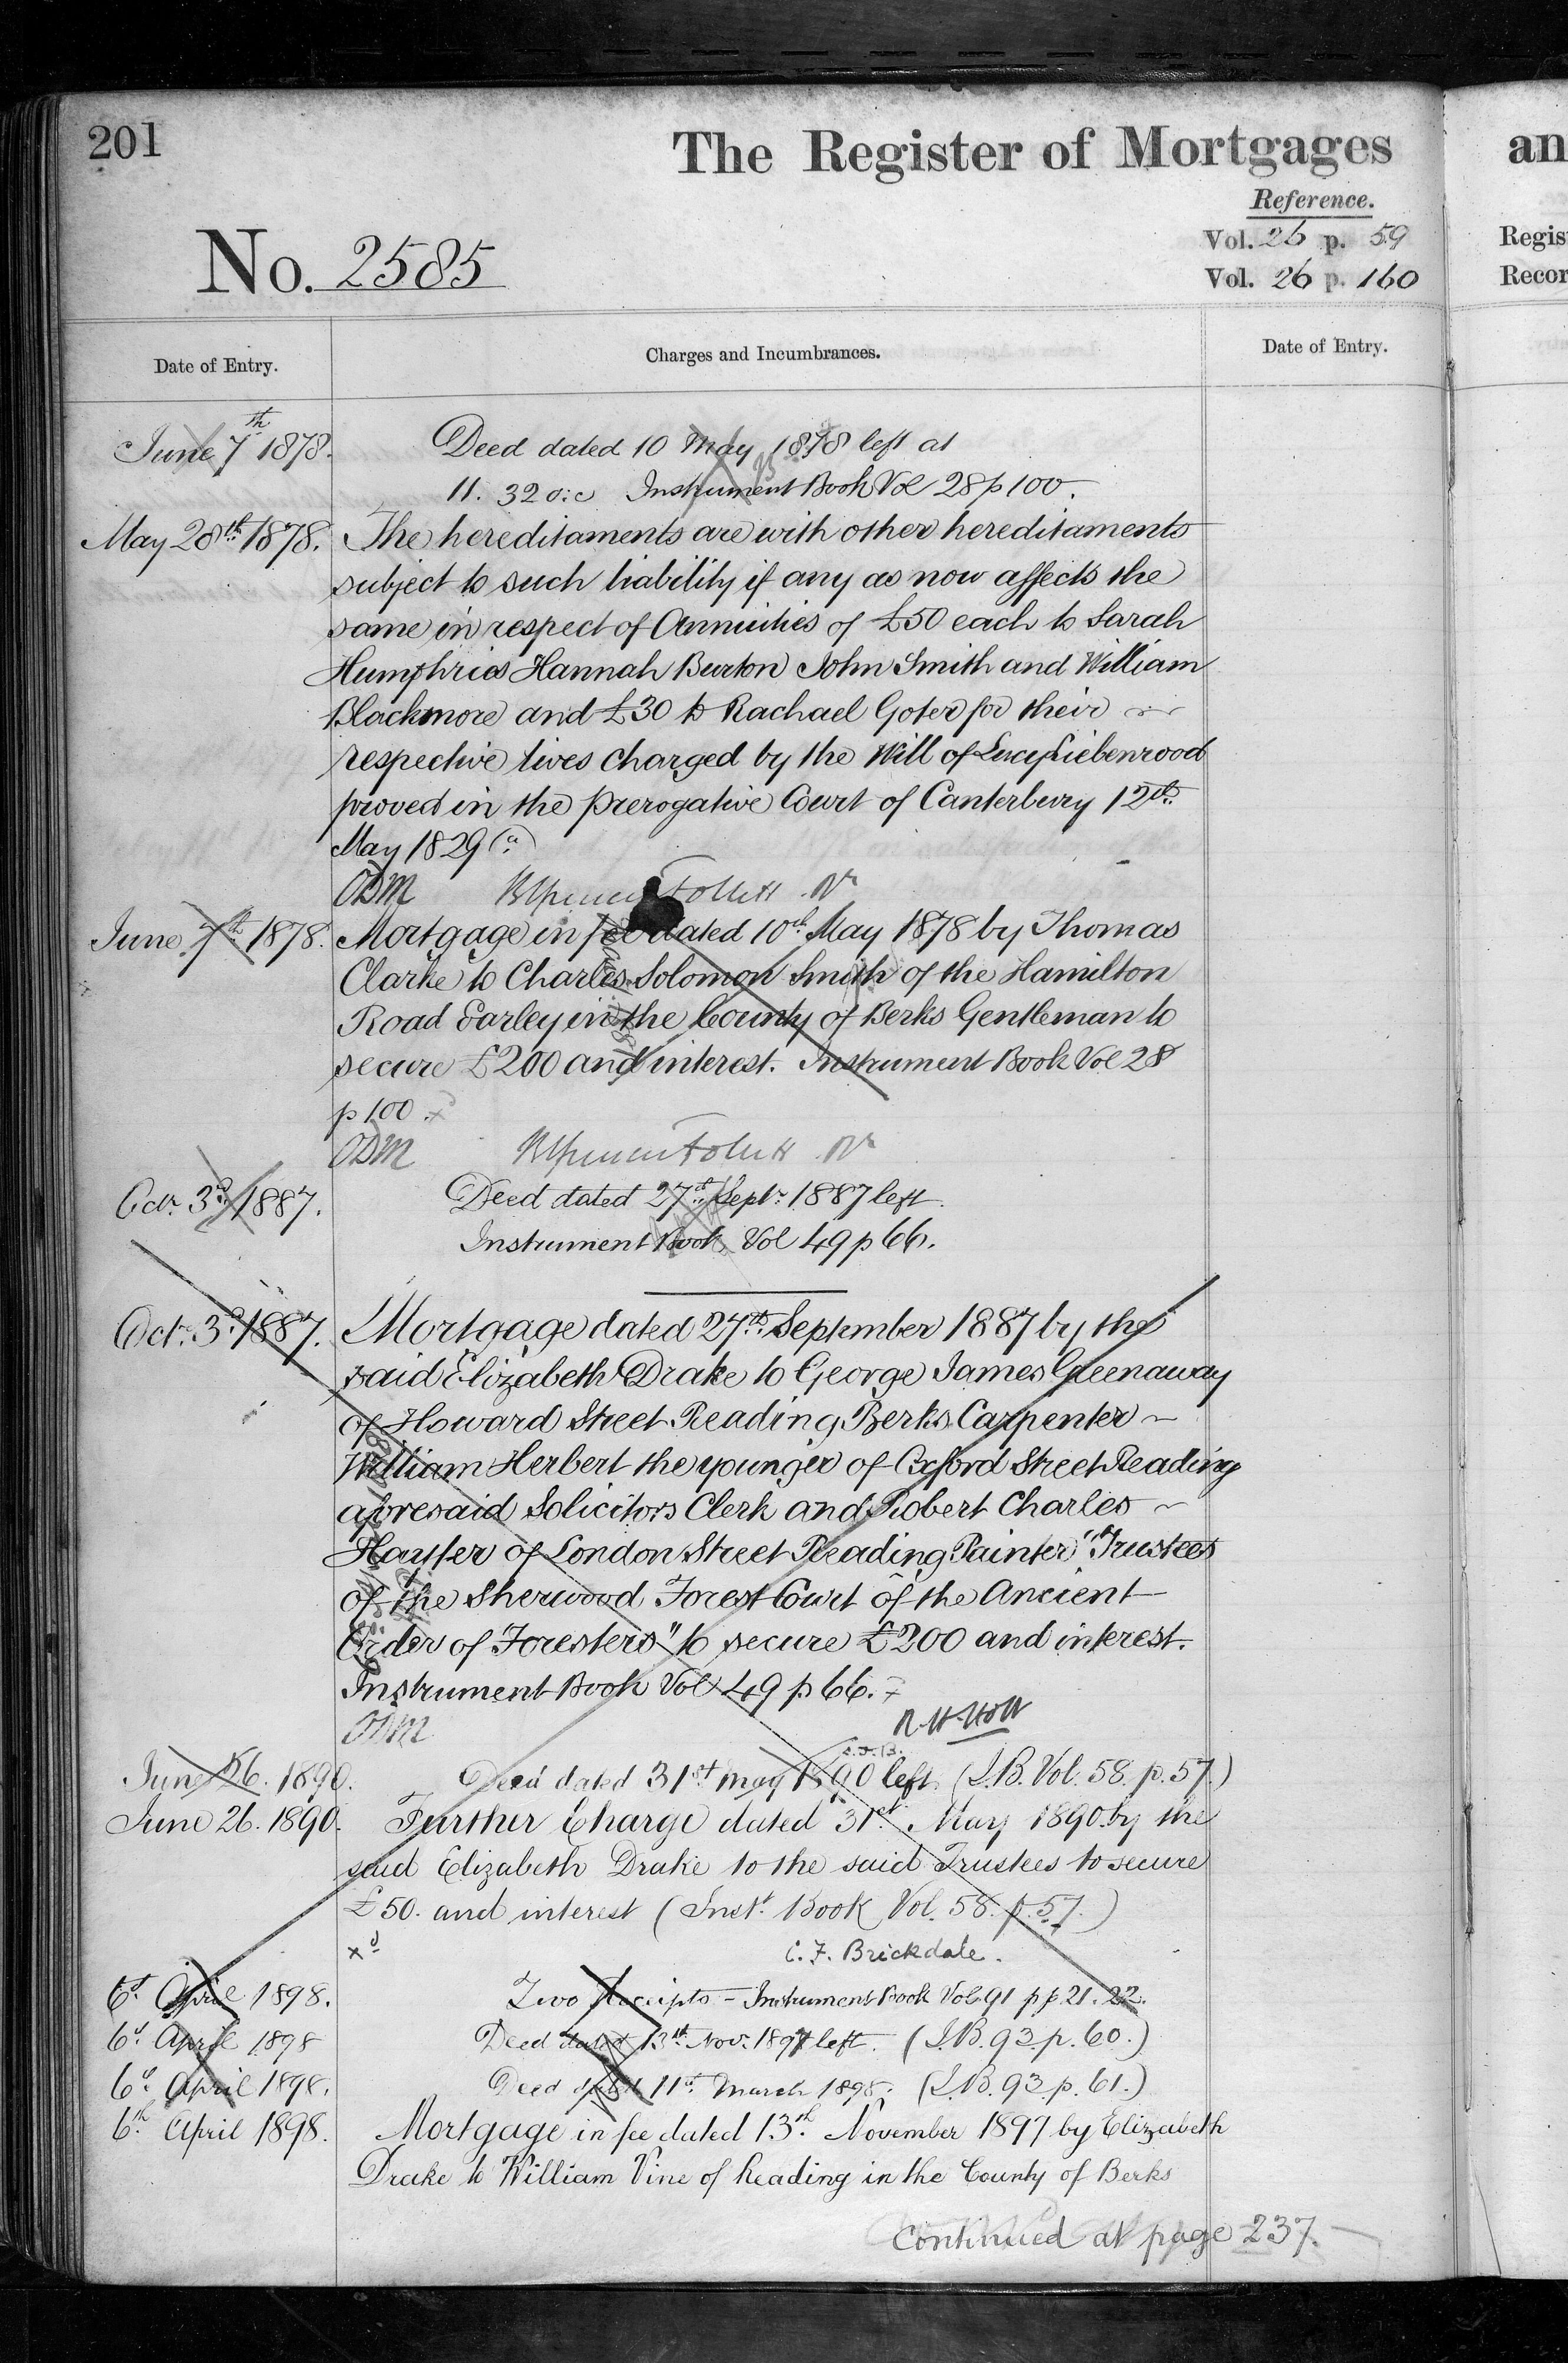 201
The Register of Mortgages
an
Reference.
No. 2585
Vol. 26 p. 59
Regis
Vol. 26 p. 160
Recor
Date of Entry.
Charges and Incumbrances.
Date of Entry.
June 7th 1878.
Deed dated 10 May 1878 left at
11. 32 o:c Instrument Book Vol 28 p 100.
May 28th 1878.
The hereditaments are with other hereditaments
subject to such liability if any as now affects the
same in respect of Annuities of £50 each to Sarah
Humphries Hannah Burton John Smith and William
Blackmore and £30 to Rachael Goter for their
respective lives charged by the Will of Lucy Liebenrood
proved in the Prerogative Court of Canterbury 12th
May 1829
ODM
June 7th 1878.
Mortgage in fee dated 10th May 1878 by Thomas
Clarke to Charles Solomon Smith of the Hamilton
Road Earley in the County of Berks Gentleman to
secure £200 and interest. Instrument Book Vol 28
p 100
ODM
Octr. 3rd 1887.
Deed dated 27th Septr. 1887 left
Instrument Book Vol 49 p 66.
Octr. 3rd 1887.
Mortgage dated 27th September 1887 by the
said Elizabeth Drake to George James Greenaway
of Howard Street Reading Berks Carpenter ~
William Herbert the younger of Oxford Street Reading
aforesaid Solicitors Clerk and Robert Charles ~
Hayter of London Street Reading Painter "Trustees
of the Sherwood Forest Court of the Ancient
Order of Foresters" to secure £200 and interest.
Instrument Book Vol 49 p 66.
ODM R. H. Holt
June 26. 1890.
Deed dated 31st May 1890 left. (I.B. Vol. 58. p. 57.)
June 26. 1890.
Further Charge dated 31st May 1890 by the
said Elizabeth Drake to the said Trustees to secure
£50. and interest (Inst. Book Vol. 58. p. 57.)
C. F. Brickdale.
6th April 1898.
Two Receipts - Instrument Book Vol. 91 pp 21. 22.
6th April 1898
Deed dated 13th Nov. 1897 left. (I.B. 93. p. 60.)
6th April 1898.
Deed dated 11th March 1898. (I.B. 93. p. 61.)
6th April 1898.
Mortgage in fee dated 13th November 1897 by Elizabeth
Drake to William Vine of Reading in the County of Berks
Continued at page 237.